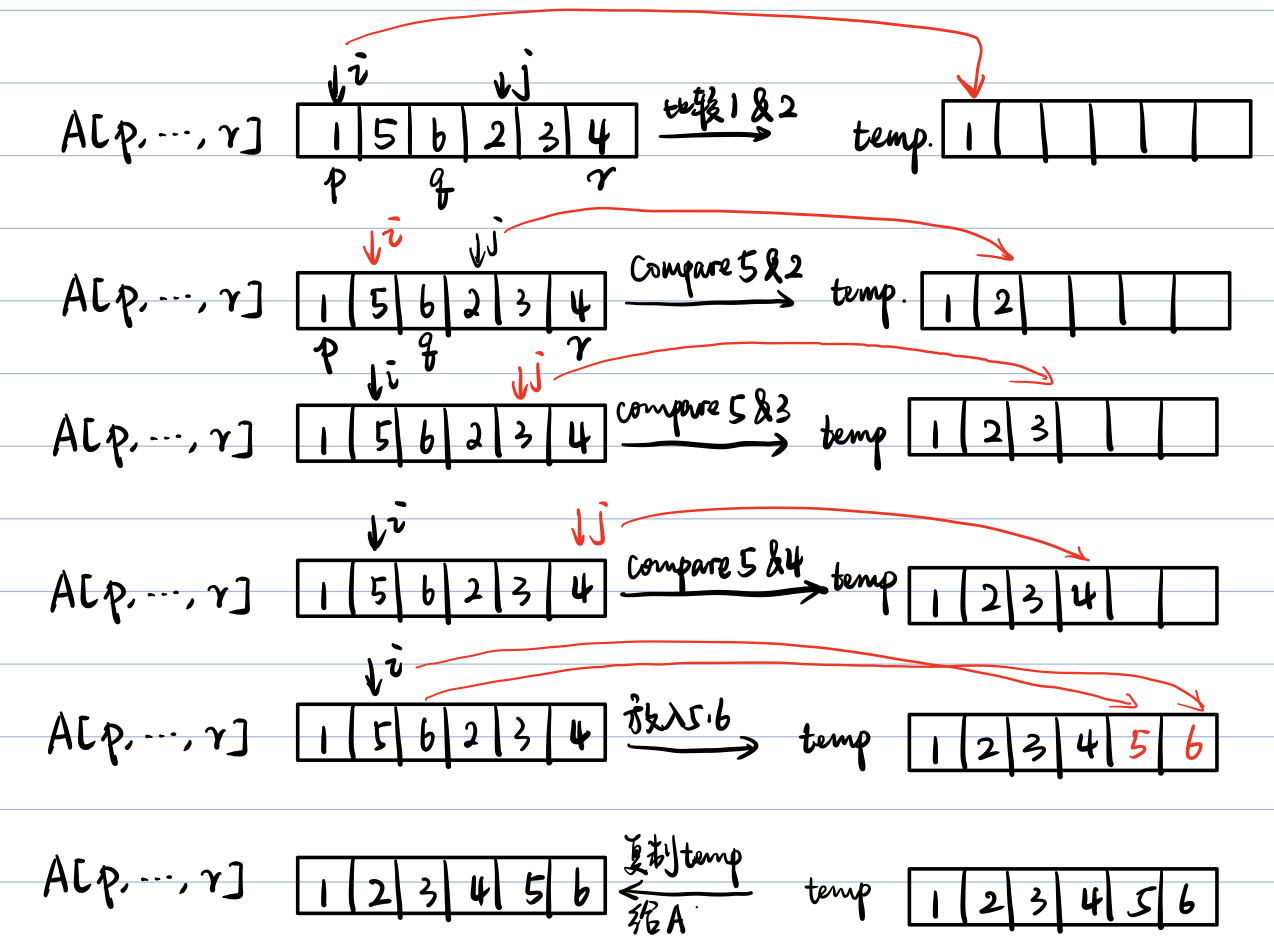 i j
A[p, ..., r] 1 5 6 2 3 4 比较1&2 temp. 1
p q r
i j
A[p, ..., r] 1 5 6 2 3 4 Compare 5&2 temp. 1 2
p q r
i j
A[p, ..., r] 1 5 6 2 3 4 compare 5&3 temp 1 2 3
i j
A[p, ..., r] 1 5 6 2 3 4 compare 5&4 temp 1 2 3 4
i
A[p, ..., r] 1 5 6 2 3 4 放入5.6 temp 1 2 3 4 5 6
A[p, ..., r] 1 2 3 4 5 6 复制temp temp 1 2 3 4 5 6
给A